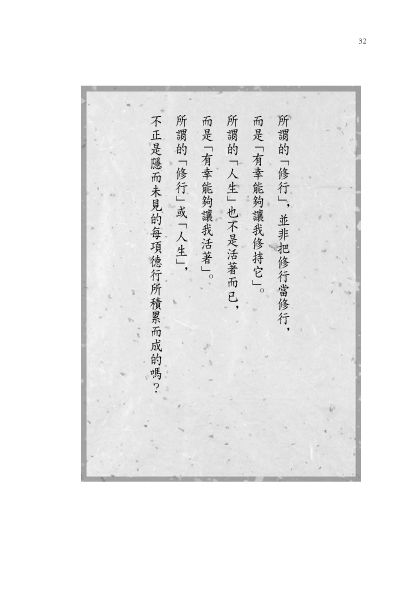 32
所謂的「修行」，並非把修行當修行，
而是「有幸能夠讓我修持它」。
所謂的「人生」也不是活著而已，
而是「有幸能夠讓我活著」。
所謂的「修行」或「人生」，
不正是隱而未見的每項德行所積累而成的嗎？